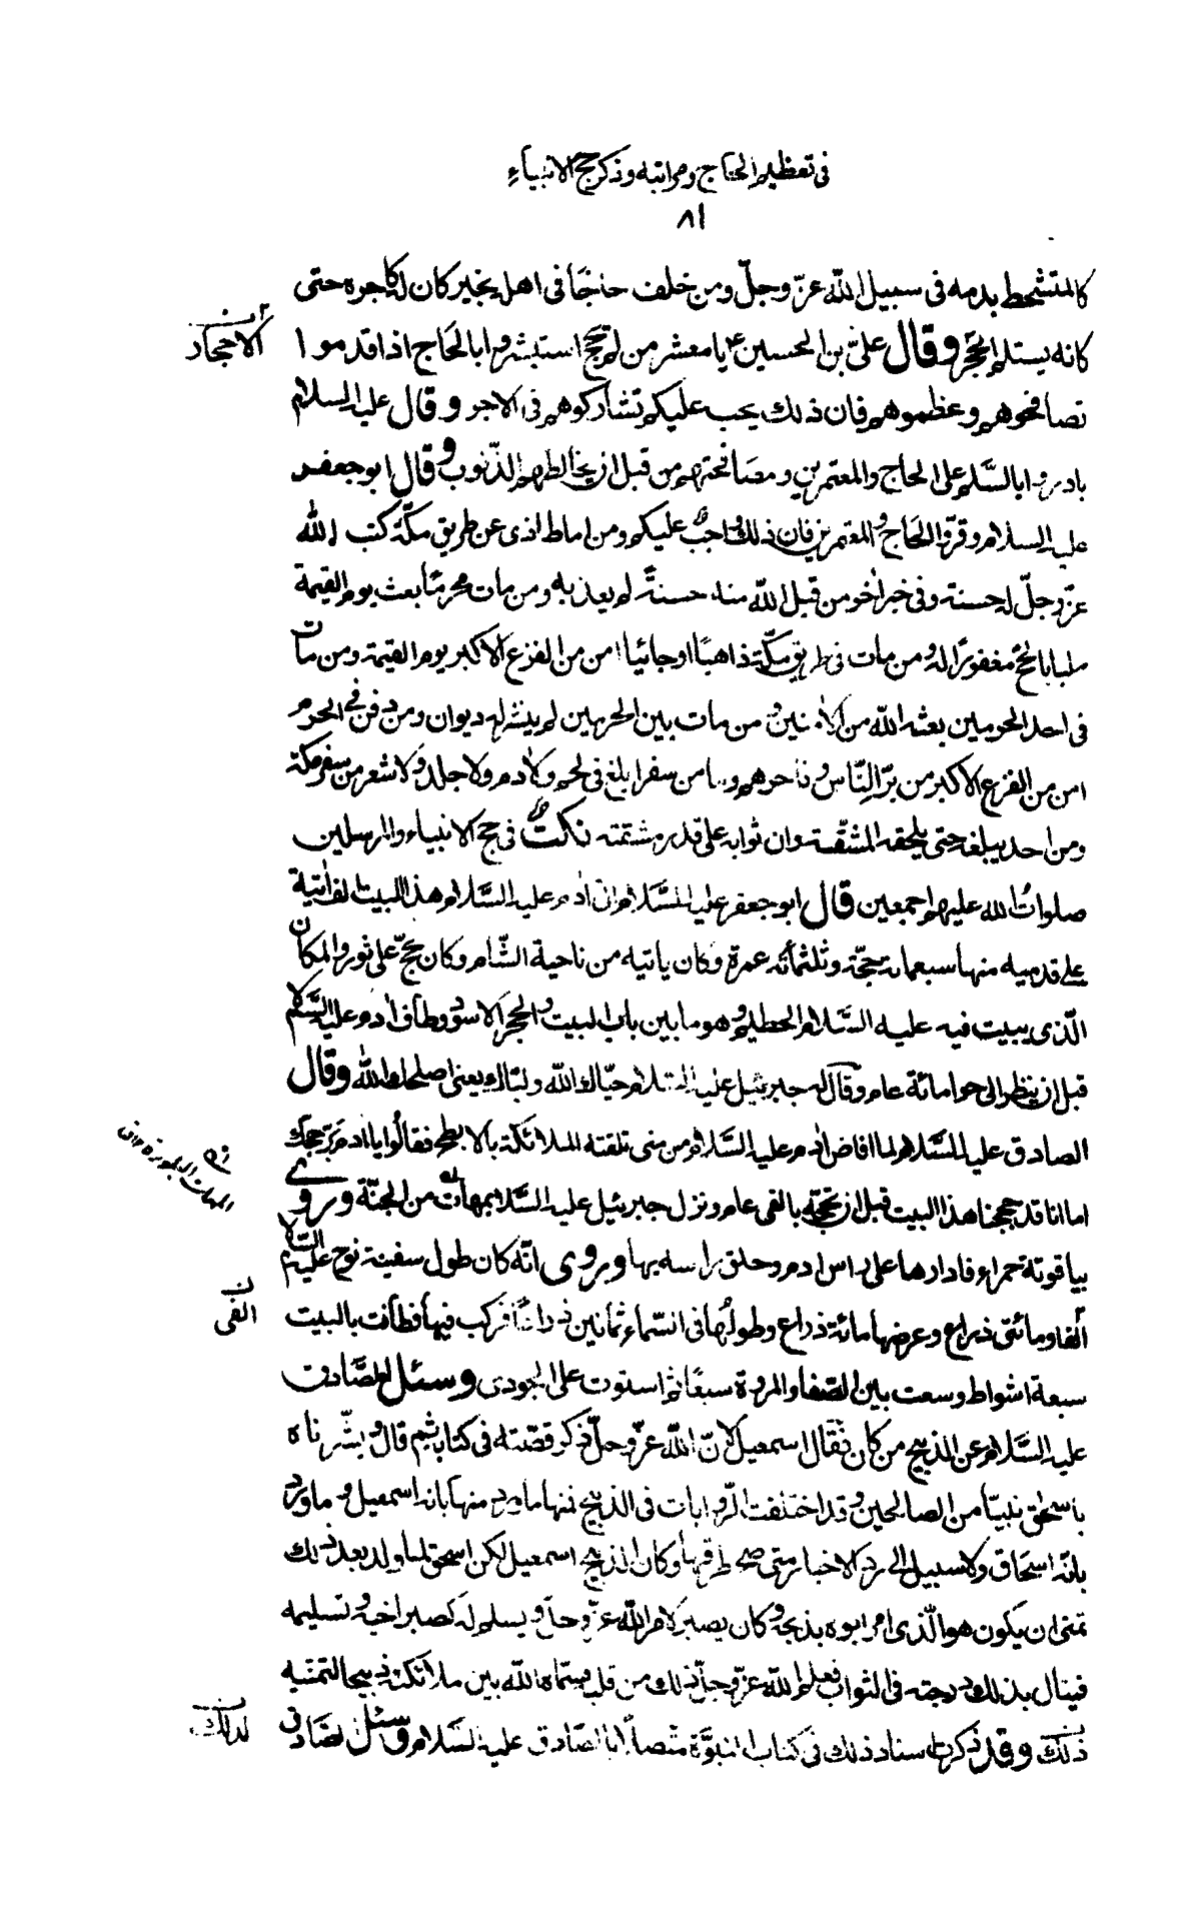 في تعظيم الحاج ومراتبه وذكر حج الانبياء
٨١
كالمتشحط بدمه في سبيل الله عزّ وجلّ ومن خلف حاجا في اهل بخير كان له كاجره حتى
كانه يستلم الحجر وقال عليّ بن الحسين ع يا معشر من لم يحج استبشروا بالحاج اذا قدموا
الاحجار
تصافحوهم وعظموهم فان ذلك يجب عليكم تشاركوهم في الاجر وقال عليه السلام
بادروا بالسّلم على الحاج والمعتمرين ومصافحتهم من قبل ان يخالطهم الذّنوب وقال ابو جعفر
عليه السلام وقّروا الحاج والمعتمرين فان ذلك واجب عليكم ومن اماط اذى عن طريق مكّة كتب الله
عزّ وجلّ له حسنة وفي خبر اخر ومن قبل الله منه حسنةً لم يعذبه ومن مات محرمًا بعث يوم القيمة
ملبيا بالحجّ مغفورًا له ومن مات في طريق مكّة ذاهبًا او جائيا امن من الفزع الاكبر يوم القيمة ومن مات
في احد الحرمين بعثه الله من الامنين ومن مات بين الحرمين لم ينشر له ديوان ومن دفن في الحرم
امن من الفزع الاكبر من برّ النّاس وفاجرهم وما من سفر ابلغ في لحم ولا دم ولا جلد ولا شعر من سفر مكة
وما من احد يبلغه حتى يلحقه المشقّة وان ثوابه على قدر مشقته نكت في حج الانبياء والمرسلين
صلوات الله عليهم اجمعين قال ابو جعفر عليه السّلام اتى ادم عليه السّلام هذا البيت الف اتية
على قدميه منها سبعمائة حجّة وثلثمائه عمرة وكان ياتيه من ناحية الشّام وكان يحجّ على ثور والمكان
الّذي يبيت فيه عليه السّلام الحطيم وهو ما بين باب البيت والحجر الاسود وطاف ادم عليه السّلام
قبل ان ينظر الى حوا مائة عام وقال له جبرئيل عليه السّلام حيّاك الله ولبّاك يعني اصلحك الله وقال
الصادق عليه السّلام لما افاض ادم عليه السّلام من منى تلقته الملائكة بالابطح فقالوا يا ادم برّ حجك
اما انا قد حججنا هذا البيت قبل ان تحجّه بالفي عام ونزل جبرئيل عليه السّلام بمهاة من الجنّة وروي
بياقوتة حمراء فادارها على راس ادم وحلق راسه بها وروي انّه كان طول سفينة نوح عليه السّلام
الفي
الفا ومائتي ذراع وعرضها مائة ذراع وطولها في السّماء ثمانين ذراعًا فركب فيها فطافت بالبيت
سبعة اشواط وسعت بين الصفا والمروة سبعًا ثمّ استوت على الجودي وسئل الصّادق
عليه السّلام عن الذبيح من كان فقال اسمعيل لانّ الله عزّ وجلّ ذكر قصّته في كتابه ثم قال وبشّرناه
باسحق نبيّا من الصالحين وقد اختلفت الرّوايات في الذبيح فمنها ما ورد منها بانه اسمعيل ومنها ما ورد
بانّه اسحاق ولا سبيل الى ردّ الاخبار متى صح طرقها وكان الذبيح اسمعيل لكن اسحق لما ولد بعد ذلك
تمنى ان يكون هو الّذي امر ابوه بذبحه وكان يصبر لامر الله عزّ وجلّ ويسلم له كصبر اخيه وتسليمه
فينال بذلك درجته في الثواب فعلم الله عزّ وجلّ ذلك من قلبه فسمّاه الله بين ملائكته ذبيحا لتمنيه
ذلك وقد ذكرت اسناد ذلك في كتاب النبوّة متصلًا بالصّادق عليه السّلام وسئل الصّادق
لذلك